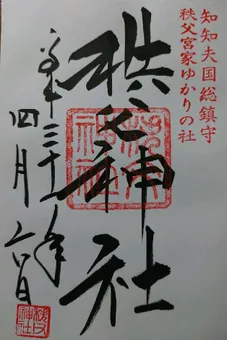 知知夫国総鎮守
秩父宮家ゆかりの社
秩父神社
平成三十一年
四月六日
秩父
神社